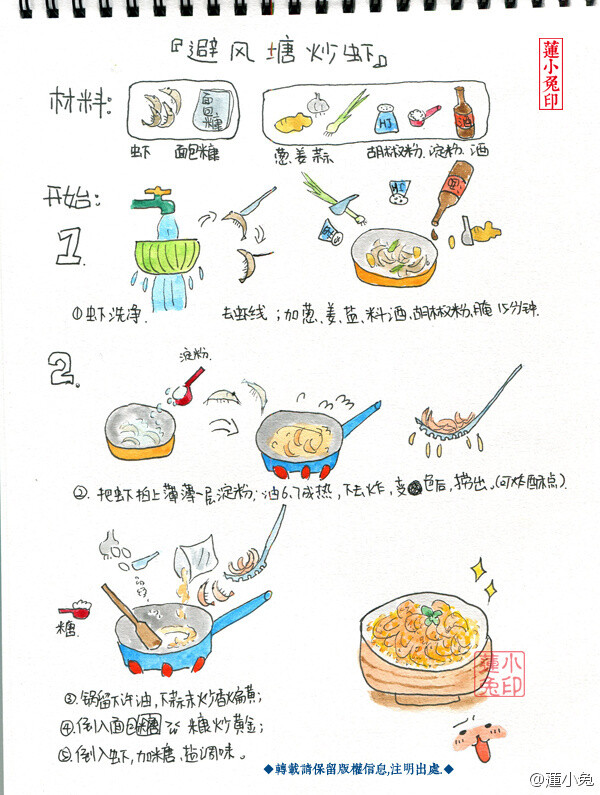 『避风塘炒虾』
蓮小兔印
材料:
面包糠
HJ
酒
虾 面包糠 葱姜蒜 胡椒粉、淀粉、酒
开始:
1.
HJ
HJ
①虾洗净. 去虾线;加葱、姜、盐、料酒、胡椒粉,腌15分钟.
2.
淀粉.
②. 把虾拍上薄薄一层淀粉;油6、7成热,下去炸,变色后,捞出。(可炸酥点)
糖.
③.锅留下许油,下蒜末炒香偏黄;
④.倒入面包糠 糠炒黄金;
⑤.倒入虾,加糖、盐调味。
蓮小兔印
◆轉載請保留版權信息,注明出處.◆
@蓮小兔